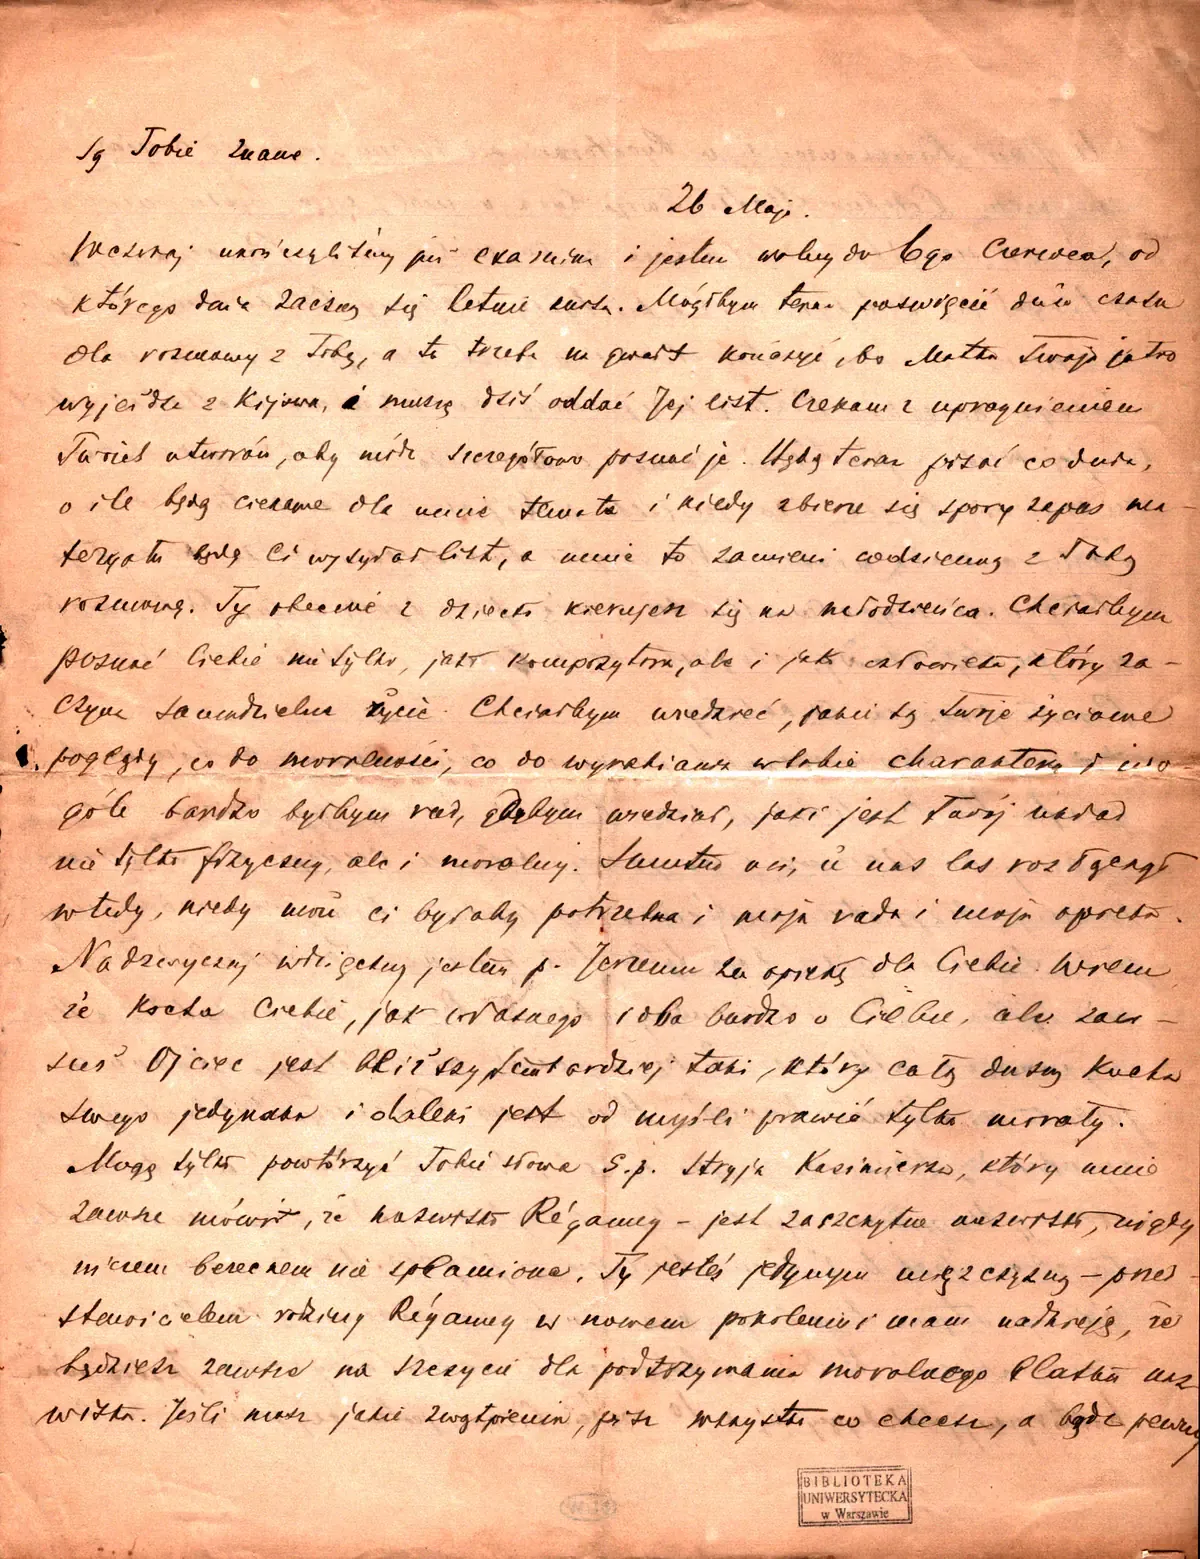 są Tobie znane.
26 Maja.
Wczoraj ukończyliśmy już examina i jestem wolny do 6go Czerwca, od
którego dnia zaczną się letnie kursa. Mógłbym teraz poświęcić dużo czasu
dla rozmowy z Tobą, a tu trzeba na gwałt kończyć, bo Matka Twoja jutro
wyjeżdża z Kijowa, i muszę dziś oddać Jej list. Czekam z upragnieniem
Twoich utworów, aby módz szczegółowo poznać je. Będę teraz pisać co dnia,
o ile będą ciekawe dla mnie temata i kiedy zbierze się spory zapas ma-
teryału będę Ci wysyłał list, a mnie to zamieni codzienną z Tobą
rozmowę. Ty obecnie z dziecka kierujesz się na młodzieńca. Chciałbym
poznać Ciebie nie tylko, jako kompozytora, ale i jak człowieka, który za-
czyna samodzielne życie. Chciałbym wiedzieć, jakie są Twoje życiowe
poglądy, co do moralności, co do wyrabiania w sobie charakteru i wo
góle bardzo byłbym rad, gdybym wiedział, jaki jest Twój układ
nie tylko fizyczny, ale i moralny. Smutno mi, że nas los rozłączył
wtedy, kiedy może ci byłaby potrzebna i moja rada i moja opieka.
Nadzwyczaj wdzięczny jestem p. Jerzemu za opiekę dla Ciebie. Wiem,
że kocha Ciebie, jak własnego i dba bardzo o Ciebie, ale zaw-
sze Ojciec jest bliższy, tembardziej taki, który całą duszą kocha
swego jedynaka i daleki jest od myśli prawić tylko morały.
Mogę tylko powtórzyć Tobie słowa ś.p. Stryja Kazimierza, który mnie
zawsze mówił, że nazwisko Régamey – jest zaszczytne nazwisko, nigdy
niczem bezecnem nie splamione. Ty jesteś jedynym mężczyzną – przed-
stawicielem rodziny Régamey w nowem pokoleniu i mam nadzieję, że
będziesz zawsze na szczycie dla podtrzymania moralnego blasku naz
wiska. Jeśli masz jakie zwątpienia, pisz wszystko co chcesz, a bądź pewny
BIBLIOTEKA
UNIWERSYTECKA
w Warszawie